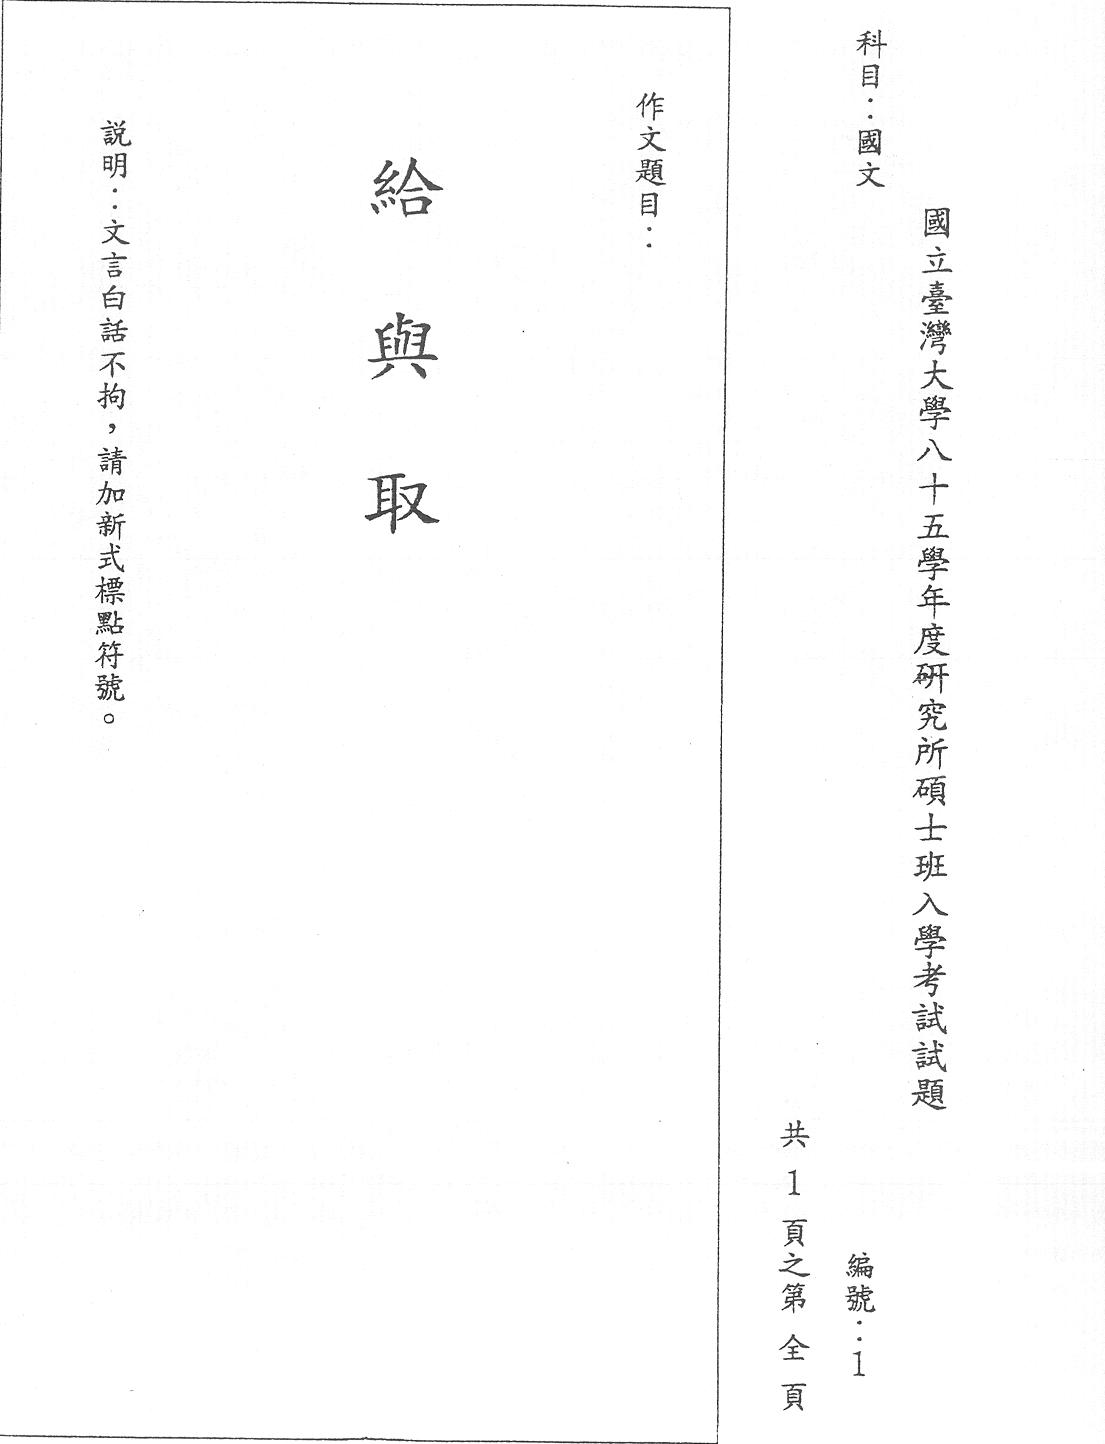 國立臺灣大學八十五學年度研究所碩士班入學考試試題
科目：國文
編號：1
共 1 頁之第 全 頁
作文題目：
給與取
說明：文言白話不拘，請加新式標點符號。